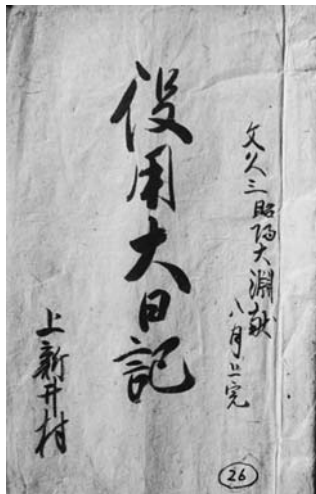 文久三昭陽大淵献
八月上完
役用大日記
上新井村
26